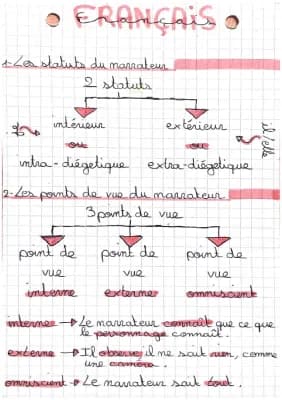 FRANÇAIS
Français
1-Les statuts du narrateur
2 statuts
intérieur extérieur
ou ou
intra-diégetique extra-diégetique
il/elle
2-Les points de vue du narrateur
3 points de vue
point de point de point de
vue vue vue
interne externe omniscient
interne → Le narrateur connaît que ce que
le personnage connaît.
externe → Il observe, il ne sait rien, comme
une caméra.
omniscient → Le narrateur sait tout.